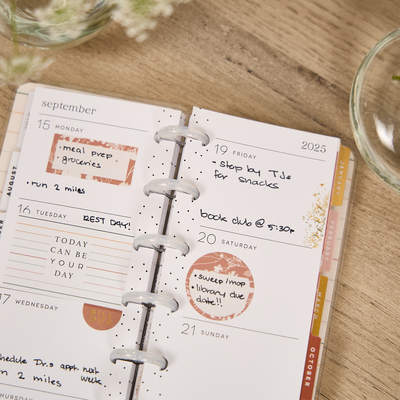 september
15 MONDAY
• meal prep
• groceries
• run 2 miles
16 TUESDAY
REST DAY!
TODAY
CAN BE
YOUR
DAY
17 WEDNESDAY
schedule Dr.s appt. next
week.
run 2 miles
THURSDAY
2025
19 FRIDAY
• stop by TJs
for snacks
book club @ 5:30p
20 SATURDAY
• sweep/mop
• library due
date!!
21 SUNDAY
AUGUST
JANUARY
MARCH
OCTOBER